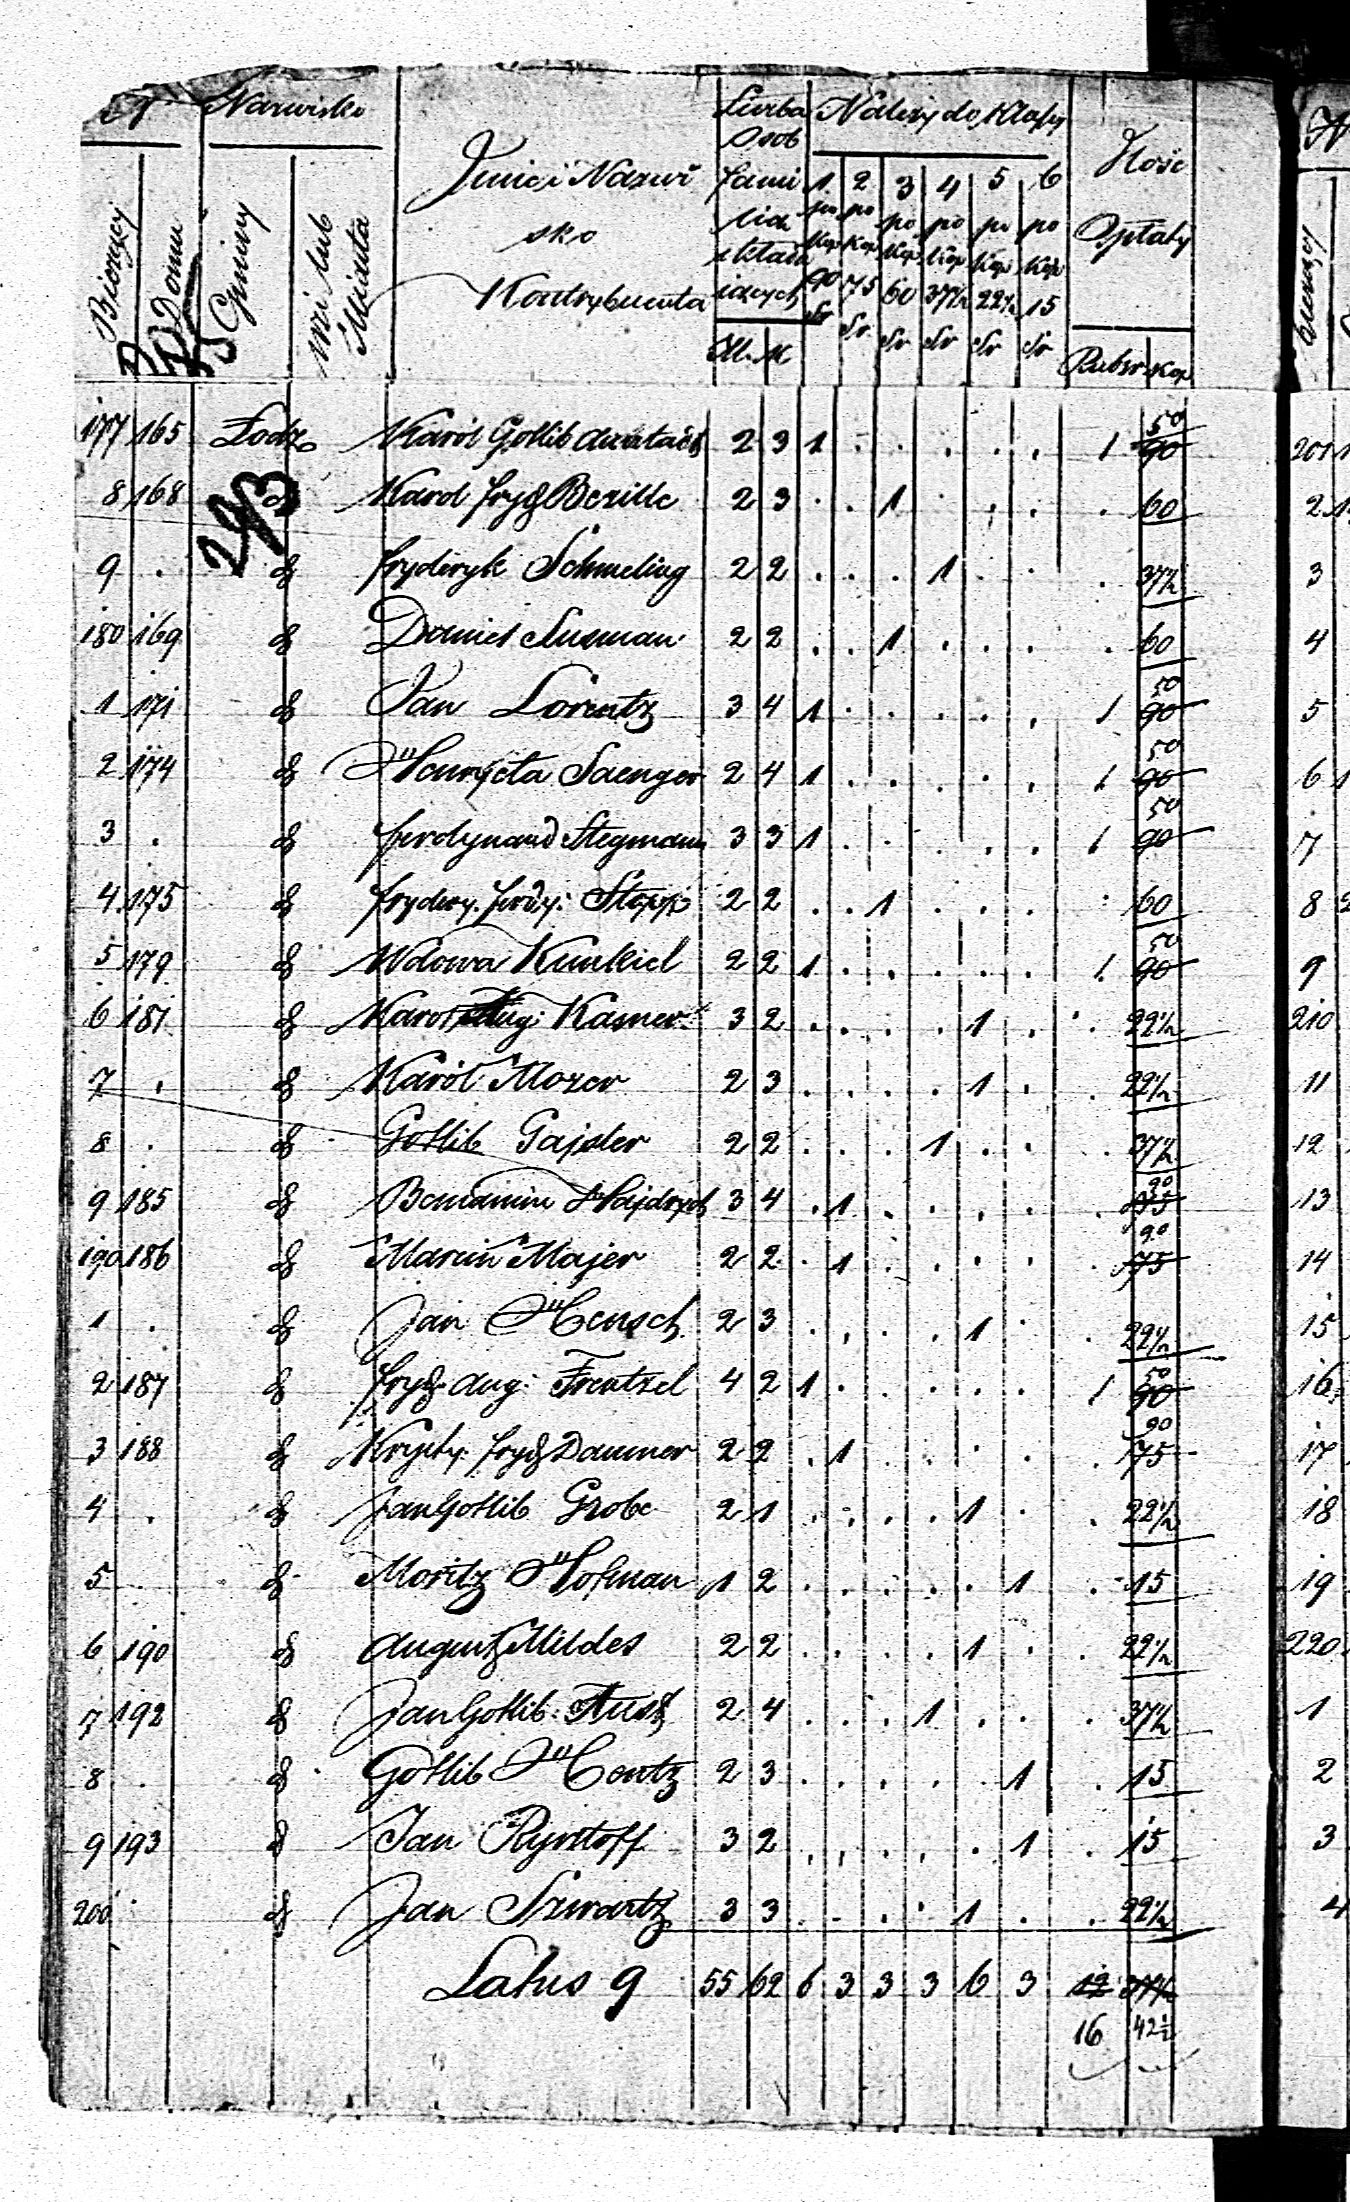 N Nazwisko Imie i Nazwi sko Kontrybuenta Liczba Osob fami lich składa iących Należy do Klassy Ilość Opłaty
Bieżący Domu Gminy wsi lub Miasta M. K 1 2 3 4 5 6
po po po po po po
Kop Kop Kop Kop Kop Kop
90 75 60 37½ 22½ 15
Sr Sr Sr Sr Sr Sr Rubsr Kop
177 165 Łodz Karól Gotlib 2 3 1 . . . . . 1 50 90
8 168 d Karol fryd 2 3 . . 1 . . . . 60
293
9 . d fryderyk Schmeling 2 2 . . . 1 . . . 37½
180 169 d Daniel Susman 2 2 . . 1 . . . . 60
1 171 d Jan Lorentz 3 4 1 . . . . . 1 50 90
2 174 d Henryeta Saenger 2 4 1 . . . . . 1 50 90
3 . d ferdynand Stegmann 3 3 1 . . . . . 1 50 90
4 175 d frydery. ferdy: Stopp 2 2 . . 1 . . . . 60
5 179 d Wdowa Kunkiel 2 2 1 . . . . . 1 50 90
6 181 d Karol Aug: Kamer 3 2 . . . . 1 . . 22½
7 . d Karól Mozer 2 3 . . . . 1 . . 22½
8 . d Gotlib Gajsler 2 2 . . . 1 . . . 37½
9 185 d Beniamin Hajdrych 3 4 . 1 . . . . . 90 75
190 186 d Marcin Majer 2 2 . 1 . . . . . 90 75
1 . d Jan Hensch 2 3 . . . . 1 . . 22½
2 187 d fryd. Aug: Frentzel 4 2 1 . . . . . 1 50 90
3 188 d Krysty: fryd Daumer 2 2 . 1 . . . . . 90 75
4 . d Jan Gotlib Grobe 2 1 . . . . 1 . . 22½
5 d Moritz Hofman 1 2 . . . . . 1 . 15
6 190 d August Mildes 2 2 . . . . 1 . . 22½
7 192 d Jan Gotlib Aust 2 4 . . . 1 . . . 37½
8 . d Gotlib Hentz 2 3 . . . . . 1 . 15
9 193 d Jan 3 2 . . . . . 1 . 15
200 d Jan Szwartz 3 3 . . . . 1 . . 22½
Latus 9 55 62 6 3 3 3 6 3 12 37½
16 42½
201
2
3
4
5
6
7
8
9
210
11
12
13
14
15
16
17
18
19
220
1
2
3
4